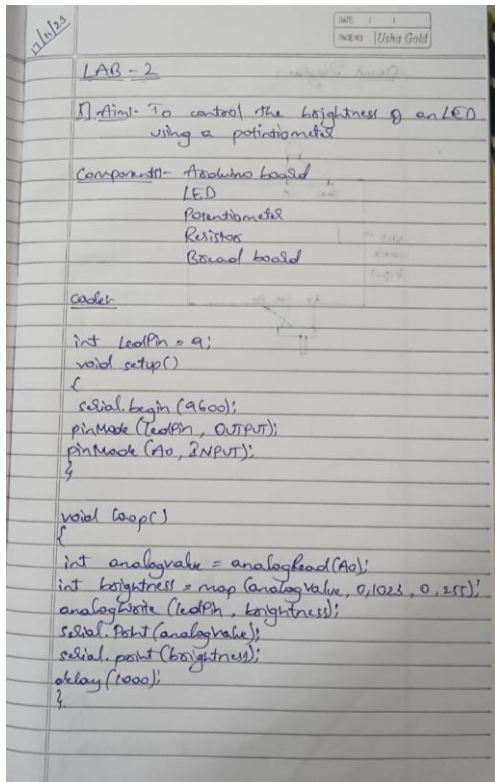 17/11/23
DATE / /
PAGE NO. Usha Gold
LAB - 2
1] Aim:- To control the brightness of an LED
using a potintiometer
Components:- Arduino board
LED
Potentiometer
Resistor
Bread board
code:-
int ledPin = 9;
void setup()
{
serial.begin (9600);
pinMode (ledPin, OUTPUT);
pinMode (A0, INPUT);
}
void loop()
{
int analogvalue = analogRead(A0);
int brightness = map (analogvalue, 0,1023, 0, 255);
analogWrite (ledPin, brightness);
serial.Print (analogvalue);
serial.print (brightness);
delay (1000);
}